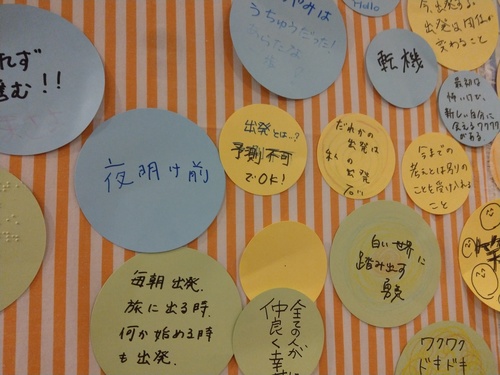 れず
進む!!
やみは
うちゅうだった!
Hello
今、出発する。
変わること
転機
最初は
怖いけど、
新しい自分に
会えるワクワク
がある
出発とは…?
予測不可
でOK!
だれかの
出発は
私の出発
今までの
考えとは別の
ことを受け入れる
こと
夜明け前
白い世界に
踏み出す
勇気
毎朝出発。
旅に出る時、
何か始める時
も出発。
全ての人が
仲良く幸せ
ワクワク
ドキドキ